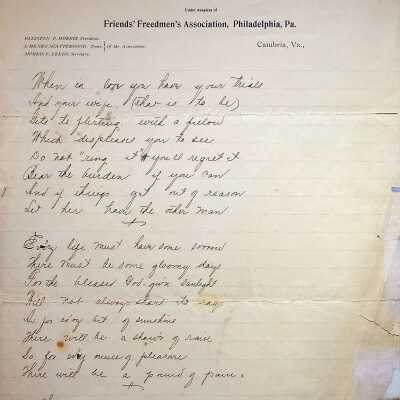 Under Auspices of
Friends' Freedmen's Association, Philadelphia, Pa.
ELLISTON P. MORRIS, President.
J. HENRY SCATTERGOOD, Treas. } of the Association.
Cambria, Va.,
When in love you have your trials
And your wife, (that is to be)
Gets to flirting with a fellow
Which displeases you to see
Do not "ring it" you'll regret it
Bear the burden if you can
And if things get out of reason
Let her have the other man
Every life must have some sorrow
There must be some gloomy days
For the blessed God-given sunlight
Will not always share its rays
As for every bit of sunshine
There will be a shower of rain
So for every ounce of pleasure
There will be a pound of pain.